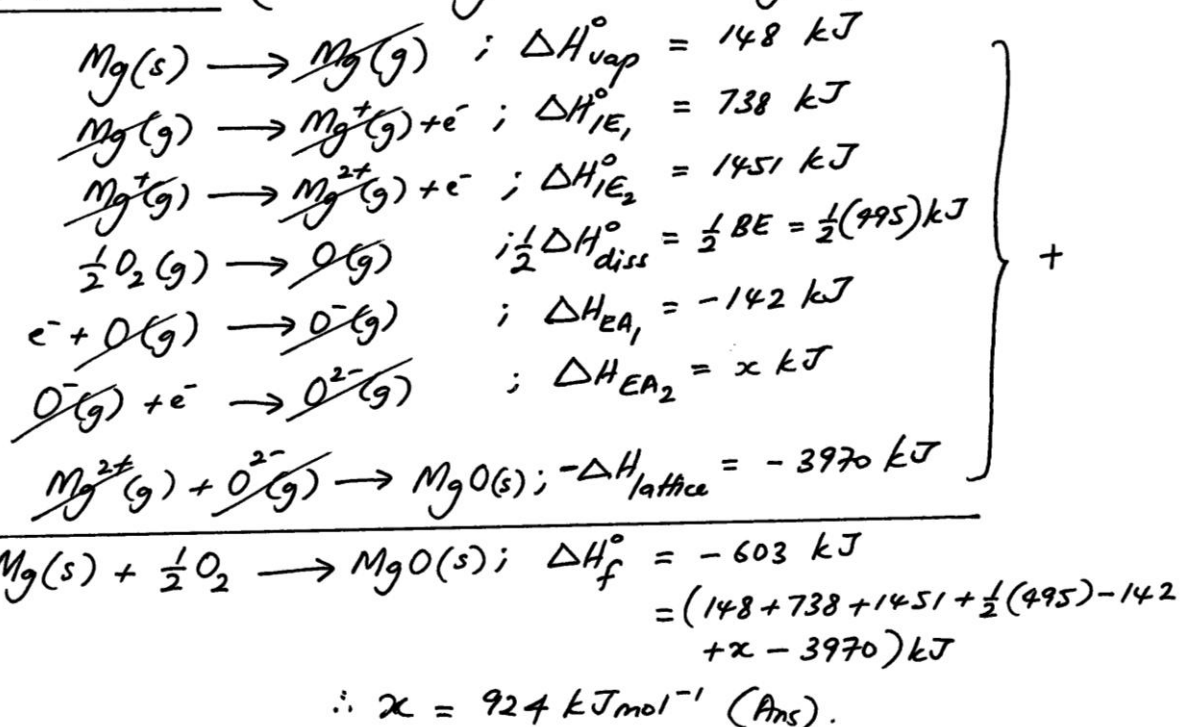 Mg(s) ⟶ Mg(g) ; ΔH°vap = 148 kJ
Mg(g) ⟶ Mg⁺(g) + e⁻ ; ΔH°IE₁ = 738 kJ
Mg⁺(g) ⟶ Mg²⁺(g) + e⁻ ; ΔH°IE₂ = 1451 kJ
½ O₂(g) ⟶ O(g) ; ½ ΔH°diss = ½ BE = ½(495) kJ
e⁻ + O(g) ⟶ O⁻(g) ; ΔHEA₁ = -142 kJ
O⁻(g) + e⁻ ⟶ O²⁻(g) ; ΔHEA₂ = x kJ
Mg²⁺(g) + O²⁻(g) ⟶ MgO(s) ; -ΔHlattice = -3970 kJ
+
Mg(s) + ½ O₂ ⟶ MgO(s) ; ΔH°f = -603 kJ
= (148 + 738 + 1451 + ½(495) - 142
+ x - 3970) kJ
∴ x = 924 kJ mol⁻¹ (Ans).